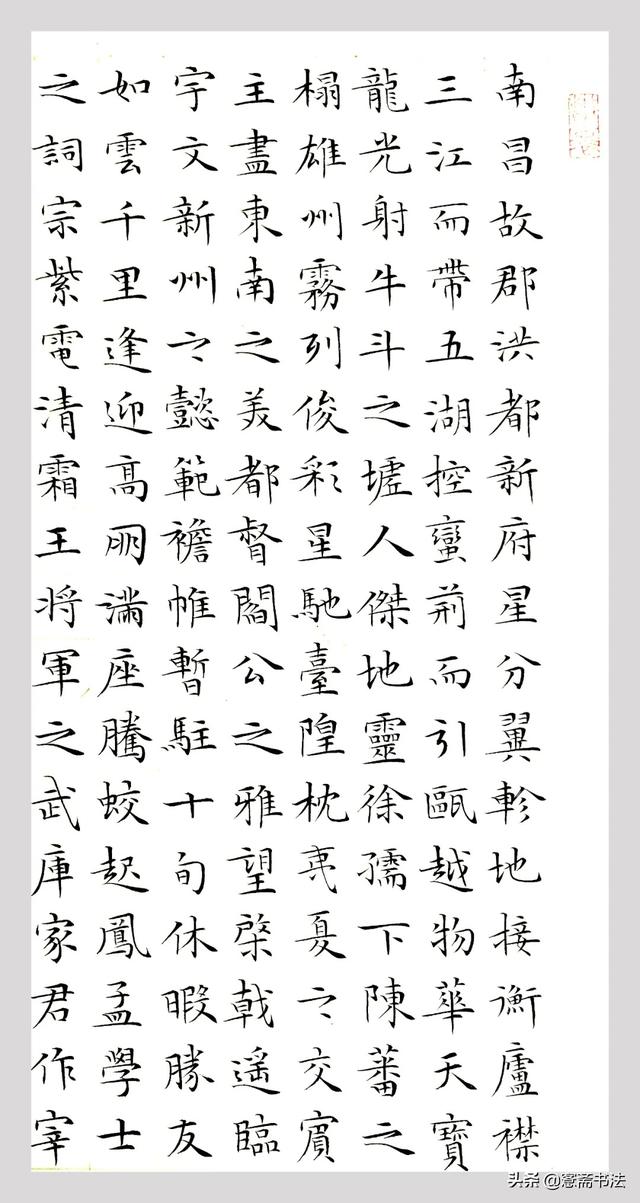 南昌故郡洪都新府星分翼軫地接衡廬襟
三江而帶五湖控蠻荊而引甌越物華天寶
龍光射牛斗之墟人傑地靈徐孺下陳蕃之
榻雄州霧列俊彩星馳臺隍枕夷夏之交賓
主盡東南之美都督閻公之雅望棨戟遥臨
宇文新州之懿範襜帷暫駐十旬休暇勝友
如雲千里逢迎高朋滿座騰蛟起鳳孟學士
之詞宗紫電清霜王将軍之武庫家君作宰
头条 @愙斋书法